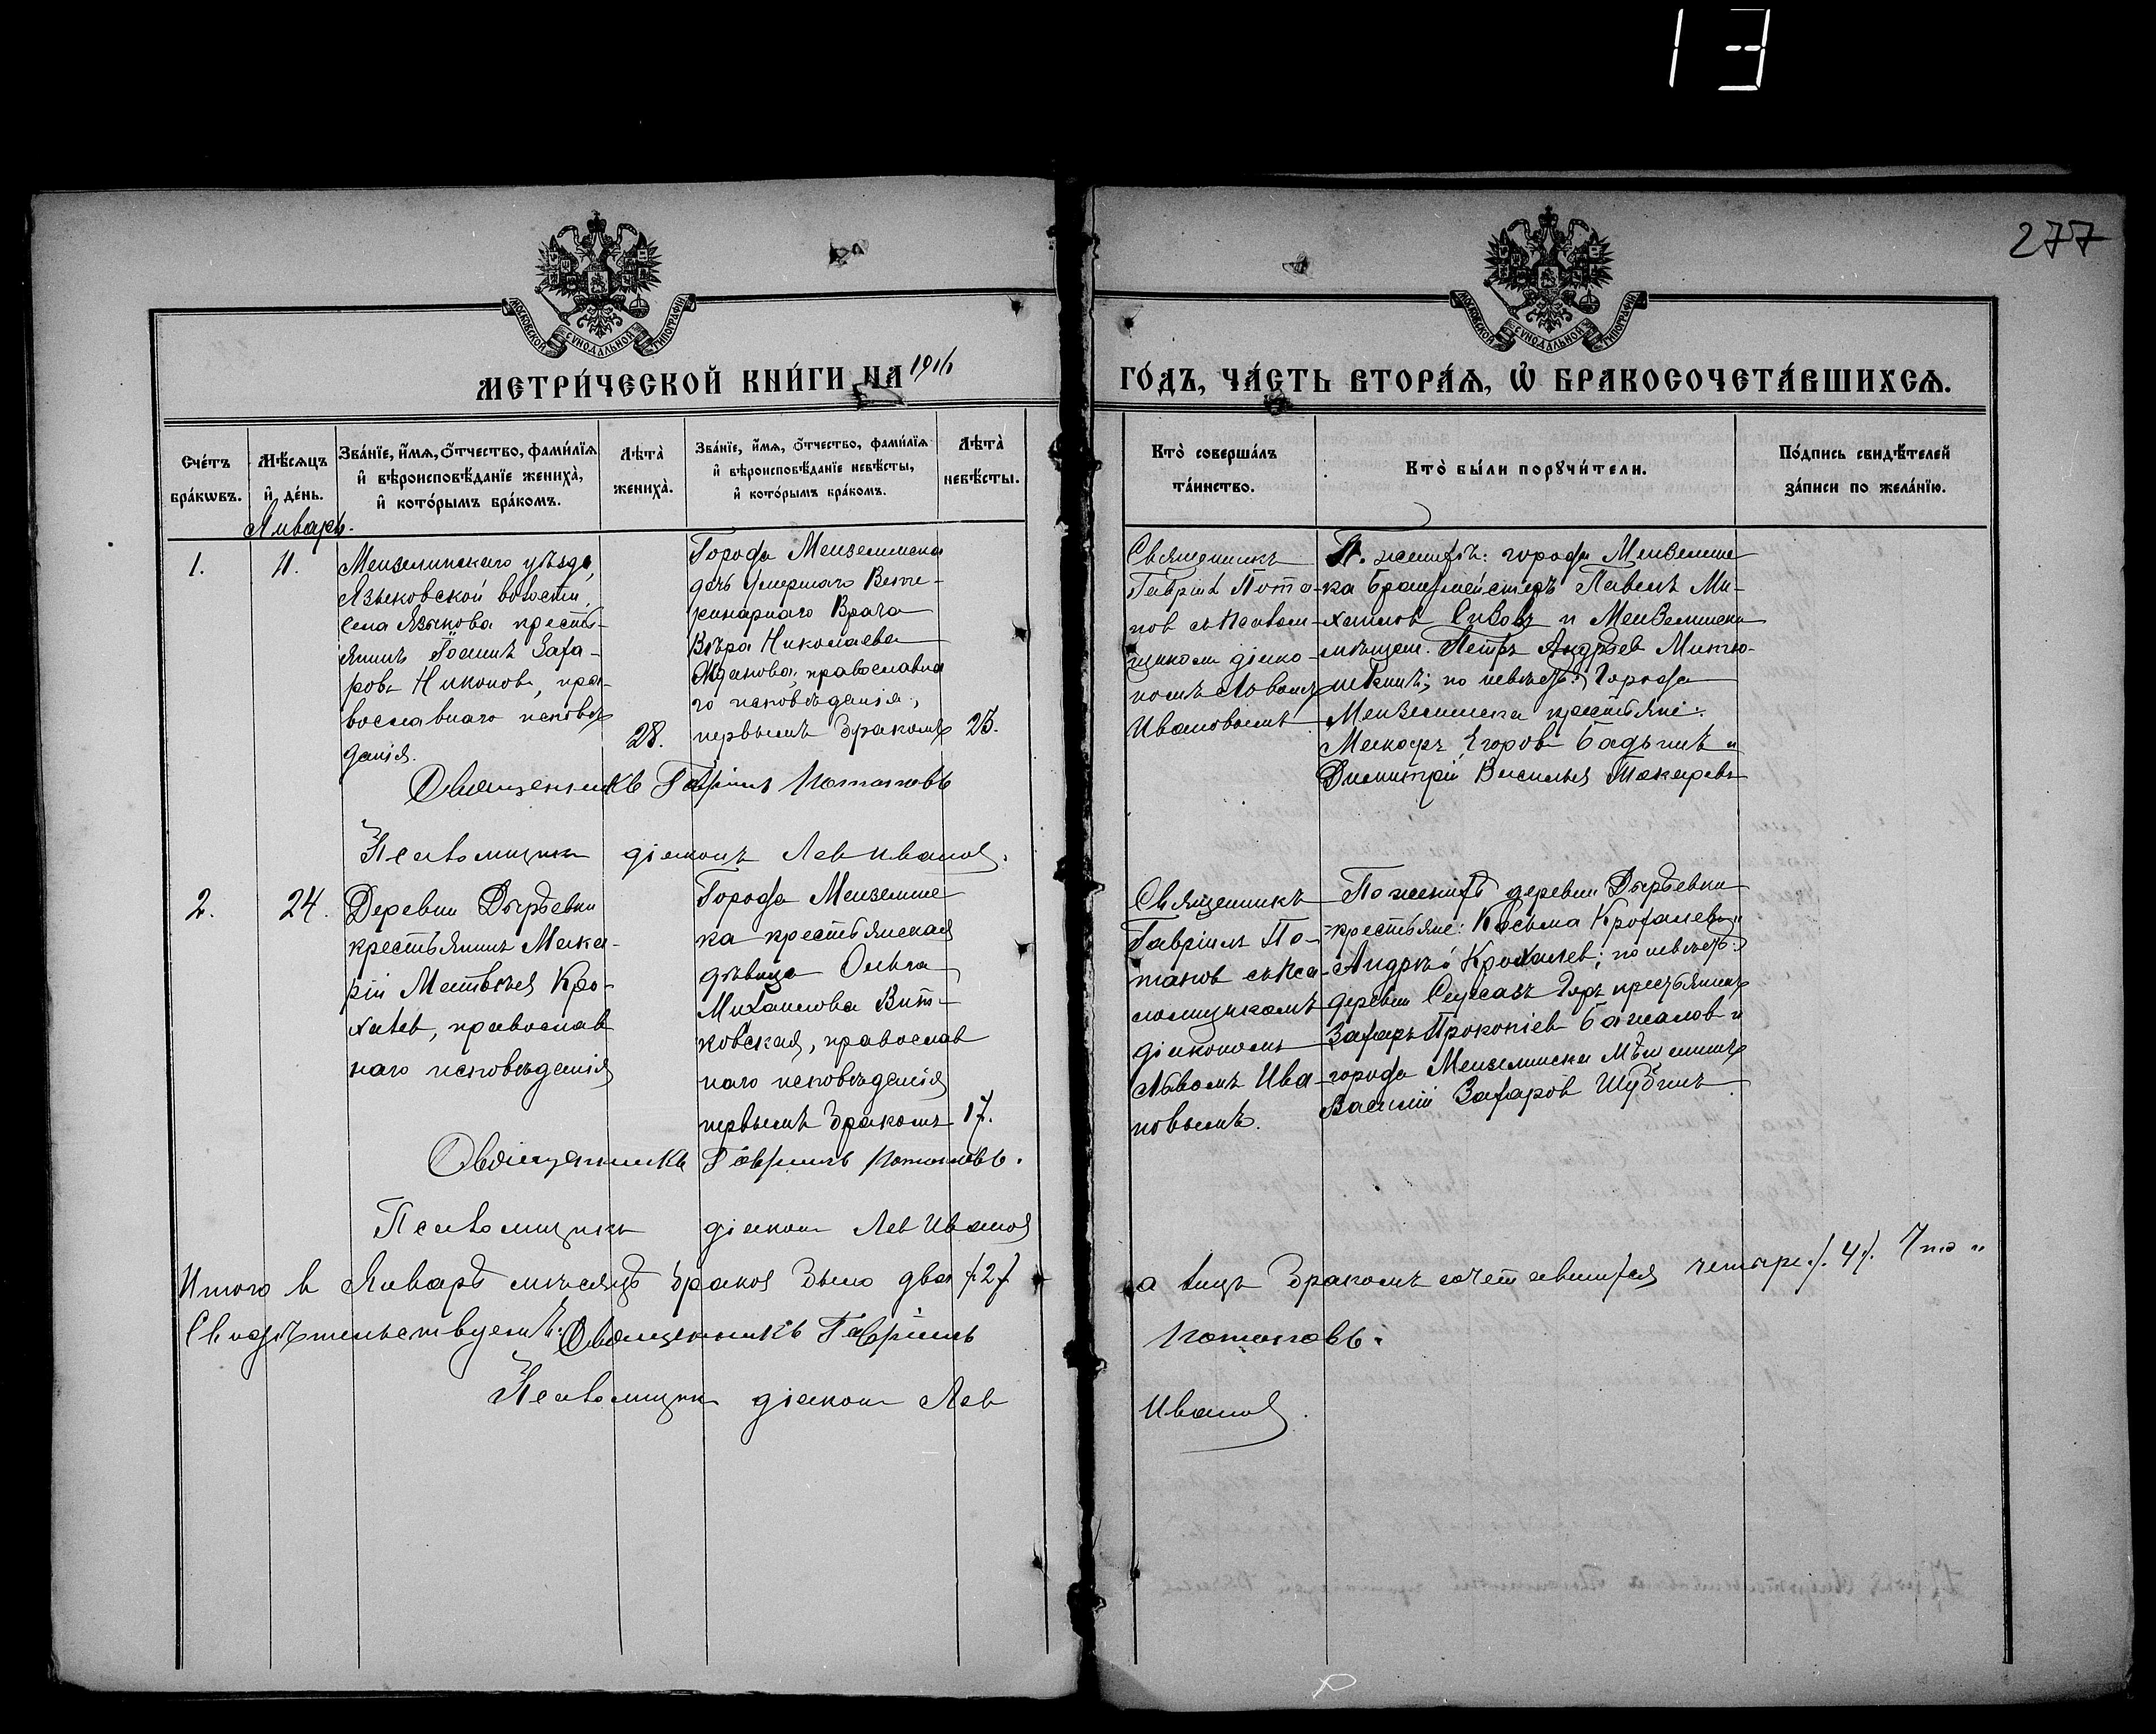 13
277
МОСКОВСКОЙ СУНОДАЛЬНОЙ ТИПОГРАФІИ
МОСКОВСКОЙ СУНОДАЛЬНОЙ ТИПОГРАФІИ
МЕТРИ́ЧЕСКОЙ КНИ́ГИ НА 1916
ГО́ДЪ, ЧА́СТЬ ВТОРА́Ѧ, Ѽ БРАКОСОЧЕТА́ВШИХСѦ.
Сче́тъ
бра́кѡвъ.
Мѣ́сѧцъ
и҆ де́нь.
Зва́нїе, и҆́мѧ, ѻ҆́тчество, фами́лїѧ
и҆ вѣроисповѣ́данїе жениха̀,
и҆ кото́рымъ бра́комъ.
Лѣта̀
жениха̀.
Зва́нїе, и҆́мѧ, ѻ҆́тчество, фами́лїѧ
и҆ вѣроисповѣ́данїе невѣ́сты,
и҆ кото́рымъ бра́комъ.
Лѣта̀
невѣ́сты.
Кто̀ соверша́лъ
та́инство.
Кто̀ бы́ли порꙋчи́тели.
По́дпись свидѣ́телей
за́писи по жела́нїю.
Январь.
1.
11.
Мензелинскаго уѣзда,
Языковской волости,
села Языкова кресть-
янинъ Іоаннъ Заха-
ровъ Никоновъ, пра-
вославнаго исповѣ
данія.
28.
Города Мензелинска
дочь умершаго Вете-
ринарнаго Врача
Вѣра Николаева
православна
го исповѣданія,
первымъ бракомъ
23.
Священникъ
Гавріил Пота-
пов съ псалом-
щиком діако-
номъ Львомъ
Ивановымъ
П. женихѣ: города Мензелин
ка брандмейстеръ Павелъ Ми-
хаилов и Мензелинска
мѣщан. Петръ Андреев
по невѣстѣ: Города
Мензелинска крестьяне:
Егоров и
Димитрій Васильев Макаровъ
Священникъ Гавріилъ Потаповъ
Псаломщикъ діаконъ Лев Иванов.
2.
24.
Деревни Дырѣевки
крестьянинъ Мака-
рій Матвѣев Кро-
халев, православ
наго исповѣданія
Города Мензелинс
ка крестьянская
дѣвица Ольга
Михаилова Вит-
ковская, православ
наго исповѣданія
первымъ бракомъ
17.
Священникъ
Гавріилъ По-
тапов съ пса-
ломщикомъ
діакономъ
Львомъ Ива-
новымъ.
По женихѣ деревни Дырѣевки
крестьяне: Косьма Крохалевъ и
Андрей Крохалев; по невѣстѣ:
деревни крестьянинъ
Захаръ Прокопіев Бажанов и
города Мензелинска Мѣщанинъ
Василій Захаров Шубинъ
Священникъ Гавріилъ Потаповъ.
Псаломщикъ діакон Лев Иванов
Итого в Январѣ мѣсяцѣ браков было два /.2./
а лицъ бракомъ сочетавшихся четыре ./. 4 /. Что и
Свидѣтельствуемъ: Священникъ Гавріилъ
Потаповъ.
Псаломщик діакон Лев
Иванов.